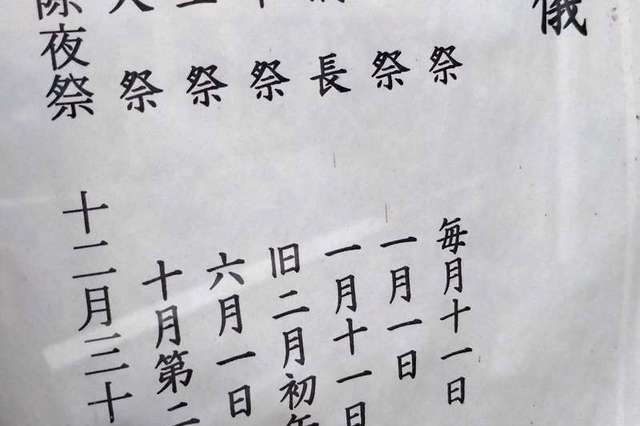 儀
祭 毎月十一日
祭 一月一日
長 一月十一日
祭 旧二月初午
祭 六月一日
祭 十月第二
除夜祭 十二月三十